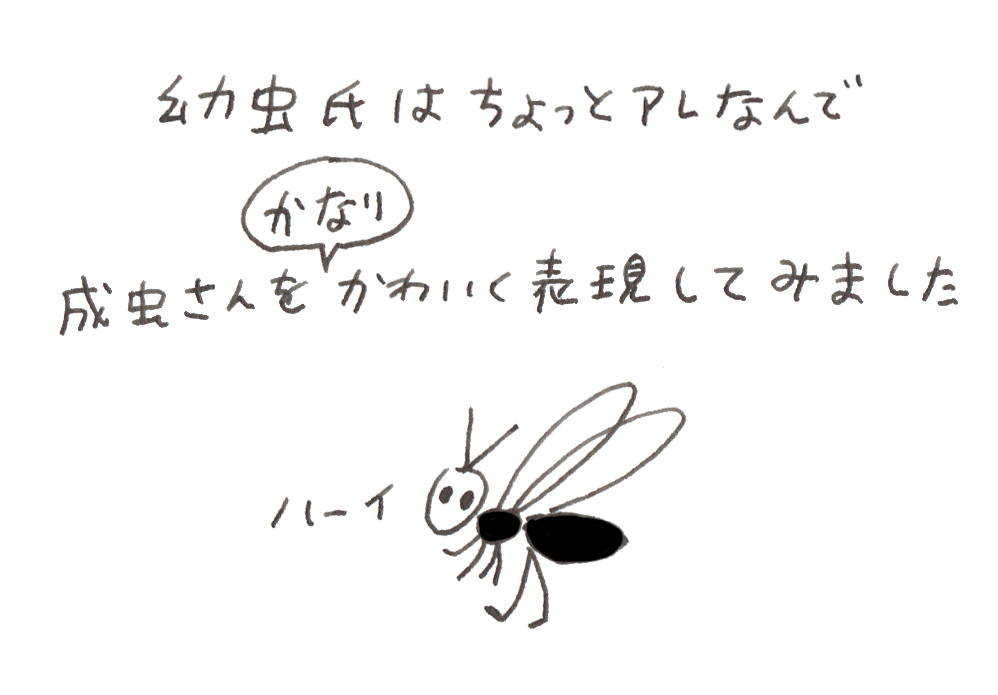 幼虫氏はちょっとアレなんで
かなり
成虫さんをかわいく表現してみました
ハーイ